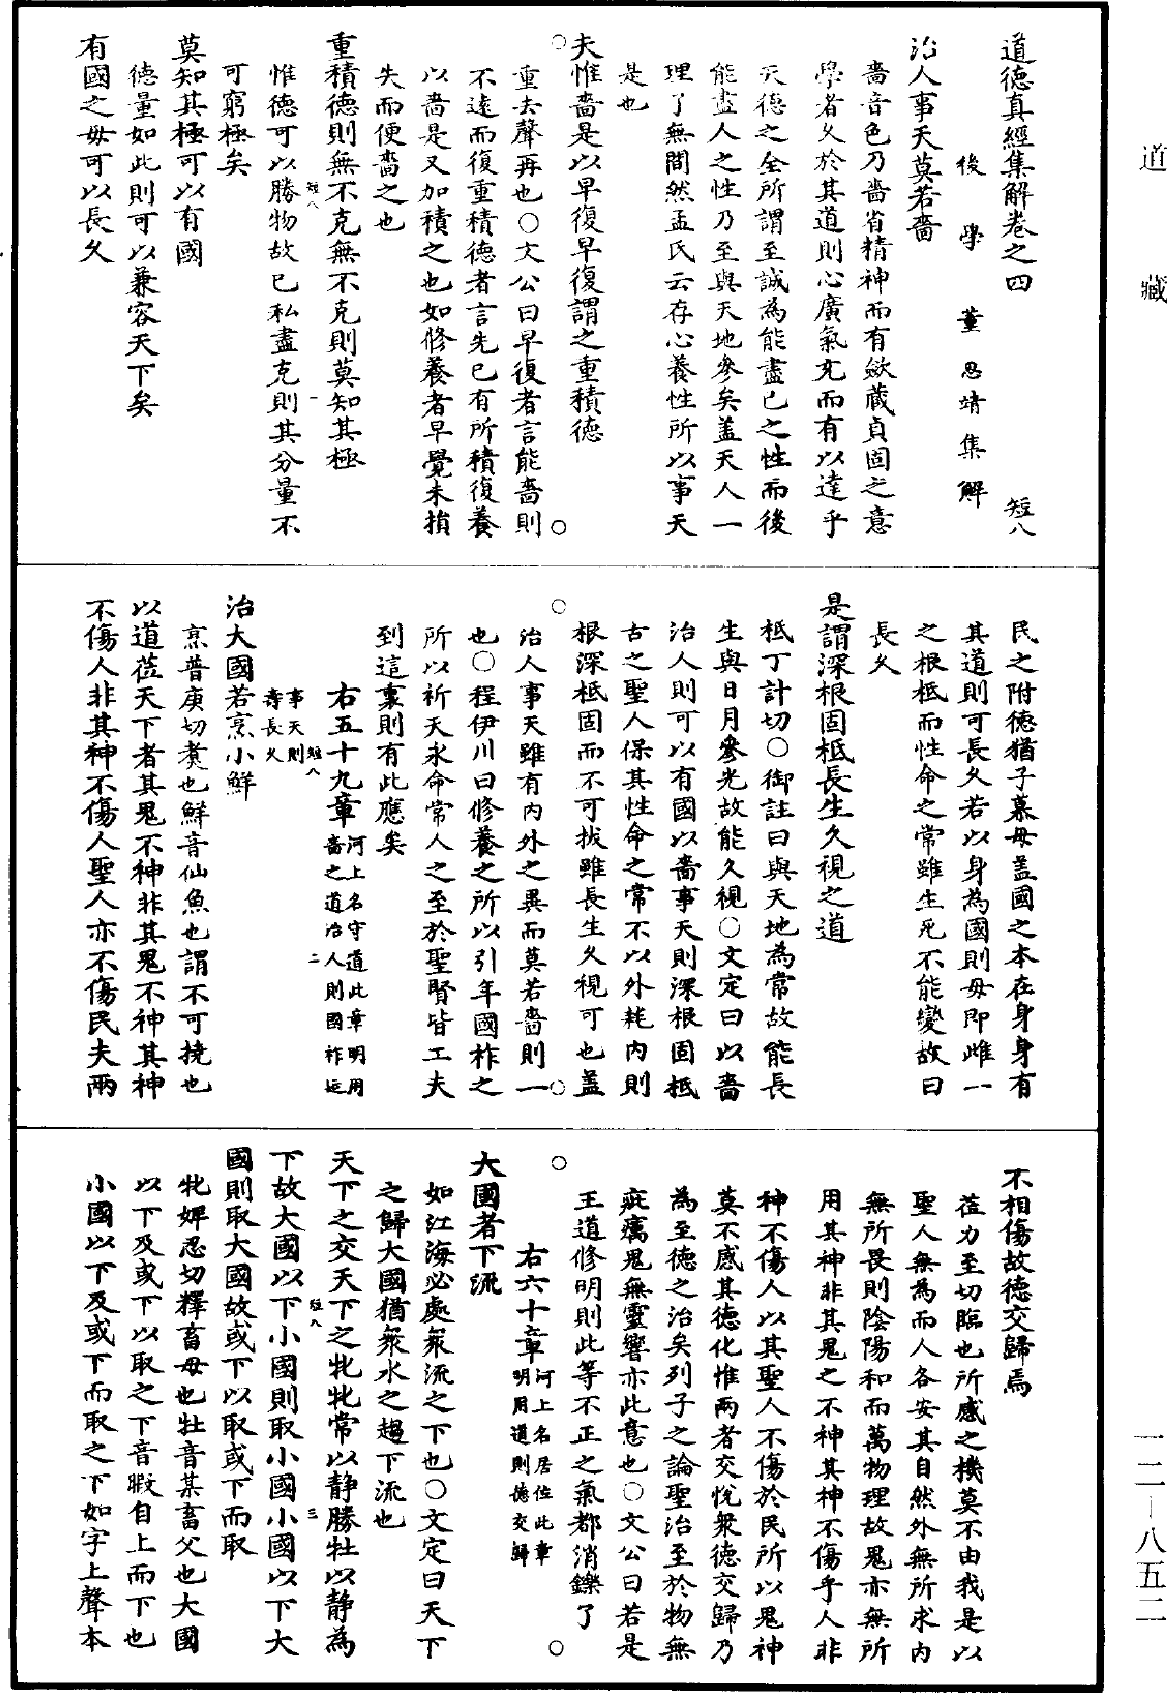 道藏
道德真經集解卷之四 短八
後學 董思靖集解
治人事天莫若嗇
嗇音色乃嗇省精神而有斂藏貞固之意
學者久於其道則心廣氣充而有以達乎
天德之全所謂至誠為能盡己之性而後
能盡人之性乃至與天地參矣蓋天人一
理了無間然孟氏云存心養性所以事天
是也
夫惟嗇是以早復早復謂之重積德
重去聲再也○文公曰早復者言能嗇則
不遠而復重積德者言先已有所積復養
以嗇是又加積之也如修養者早覺未損
失而便嗇之也
重積德則無不克無不克則莫知其極
短八 一
惟德可以勝物故已私盡克則其分量不
可窮極矣
莫知其極可以有國
德量如此則可以兼容天下矣
有國之母可以長久
民之附德猶子慕母蓋國之本在身身有
其道則可長久若以身為國則母即雌一
之根柢而性命之常雖生死不能變故曰
長久
是謂深根固柢長生久視之道
柢丁計切○御註曰與天地為常故能長
生與日月參光故能久視○文定曰以嗇
治人則可以有國以嗇事天則深根固柢
古之聖人保其性命之常不以外耗內則
根深柢固而不可拔雖長生久視可也蓋
治人事天雖有內外之異而莫若嗇則一
也○程伊川曰修養之所以引年國祚之
所以祈天永命常人之至於聖賢皆工夫
到這裏則有此應矣
右五十九章河上名守道此章明用
嗇之道治人則國祚延
短八 二
事天則
壽長久
治大國若烹小鮮
烹普庚切煑也鮮音仙魚也謂不可撓也
以道莅天下者其鬼不神非其鬼不神其神
不傷人非其神不傷人聖人亦不傷民夫兩
不相傷故德交歸焉
莅力至切臨也所感之機莫不由我是以
聖人無為而人各安其自然外無所求內
無所畏則陰陽和而萬物理故鬼亦無所
用其神非其鬼之不神其神不傷乎人非
神不傷人以其聖人不傷於民所以鬼神
莫不感其德化惟兩者交悅衆德交歸乃
為至德之治矣列子之論聖治至於物無
疵癘鬼無靈響亦此意也○文公曰若是
王道修明則此等不正之氣都消鑠了
右六十章河上名居位此章
明用道則德交歸
大國者下流
如江海必處衆流之下也○文定曰天下
之歸大國猶衆水之趨下流也
天下之交天下之牝牝常以静勝牡以静為
短八 三
下故大國以下小國則取小國小國以下大
國則取大國故或下以取或下而取
牝婢忍切釋畜母也牡音某畜父也大國
以下及或下以取之下音暇自上而下也
小國以下及或下而取之下如字上聲本
一二—八五二